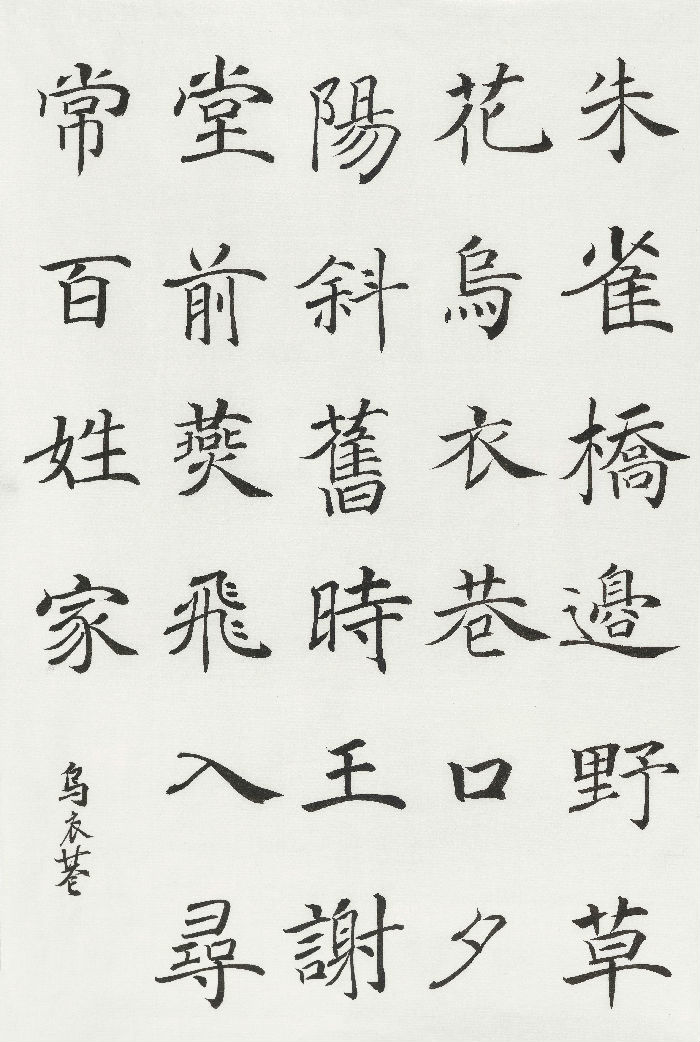 朱雀橋邉野草
花烏衣巷口夕
陽斜舊時王謝
堂前燕飛入尋
常百姓家
烏衣巷